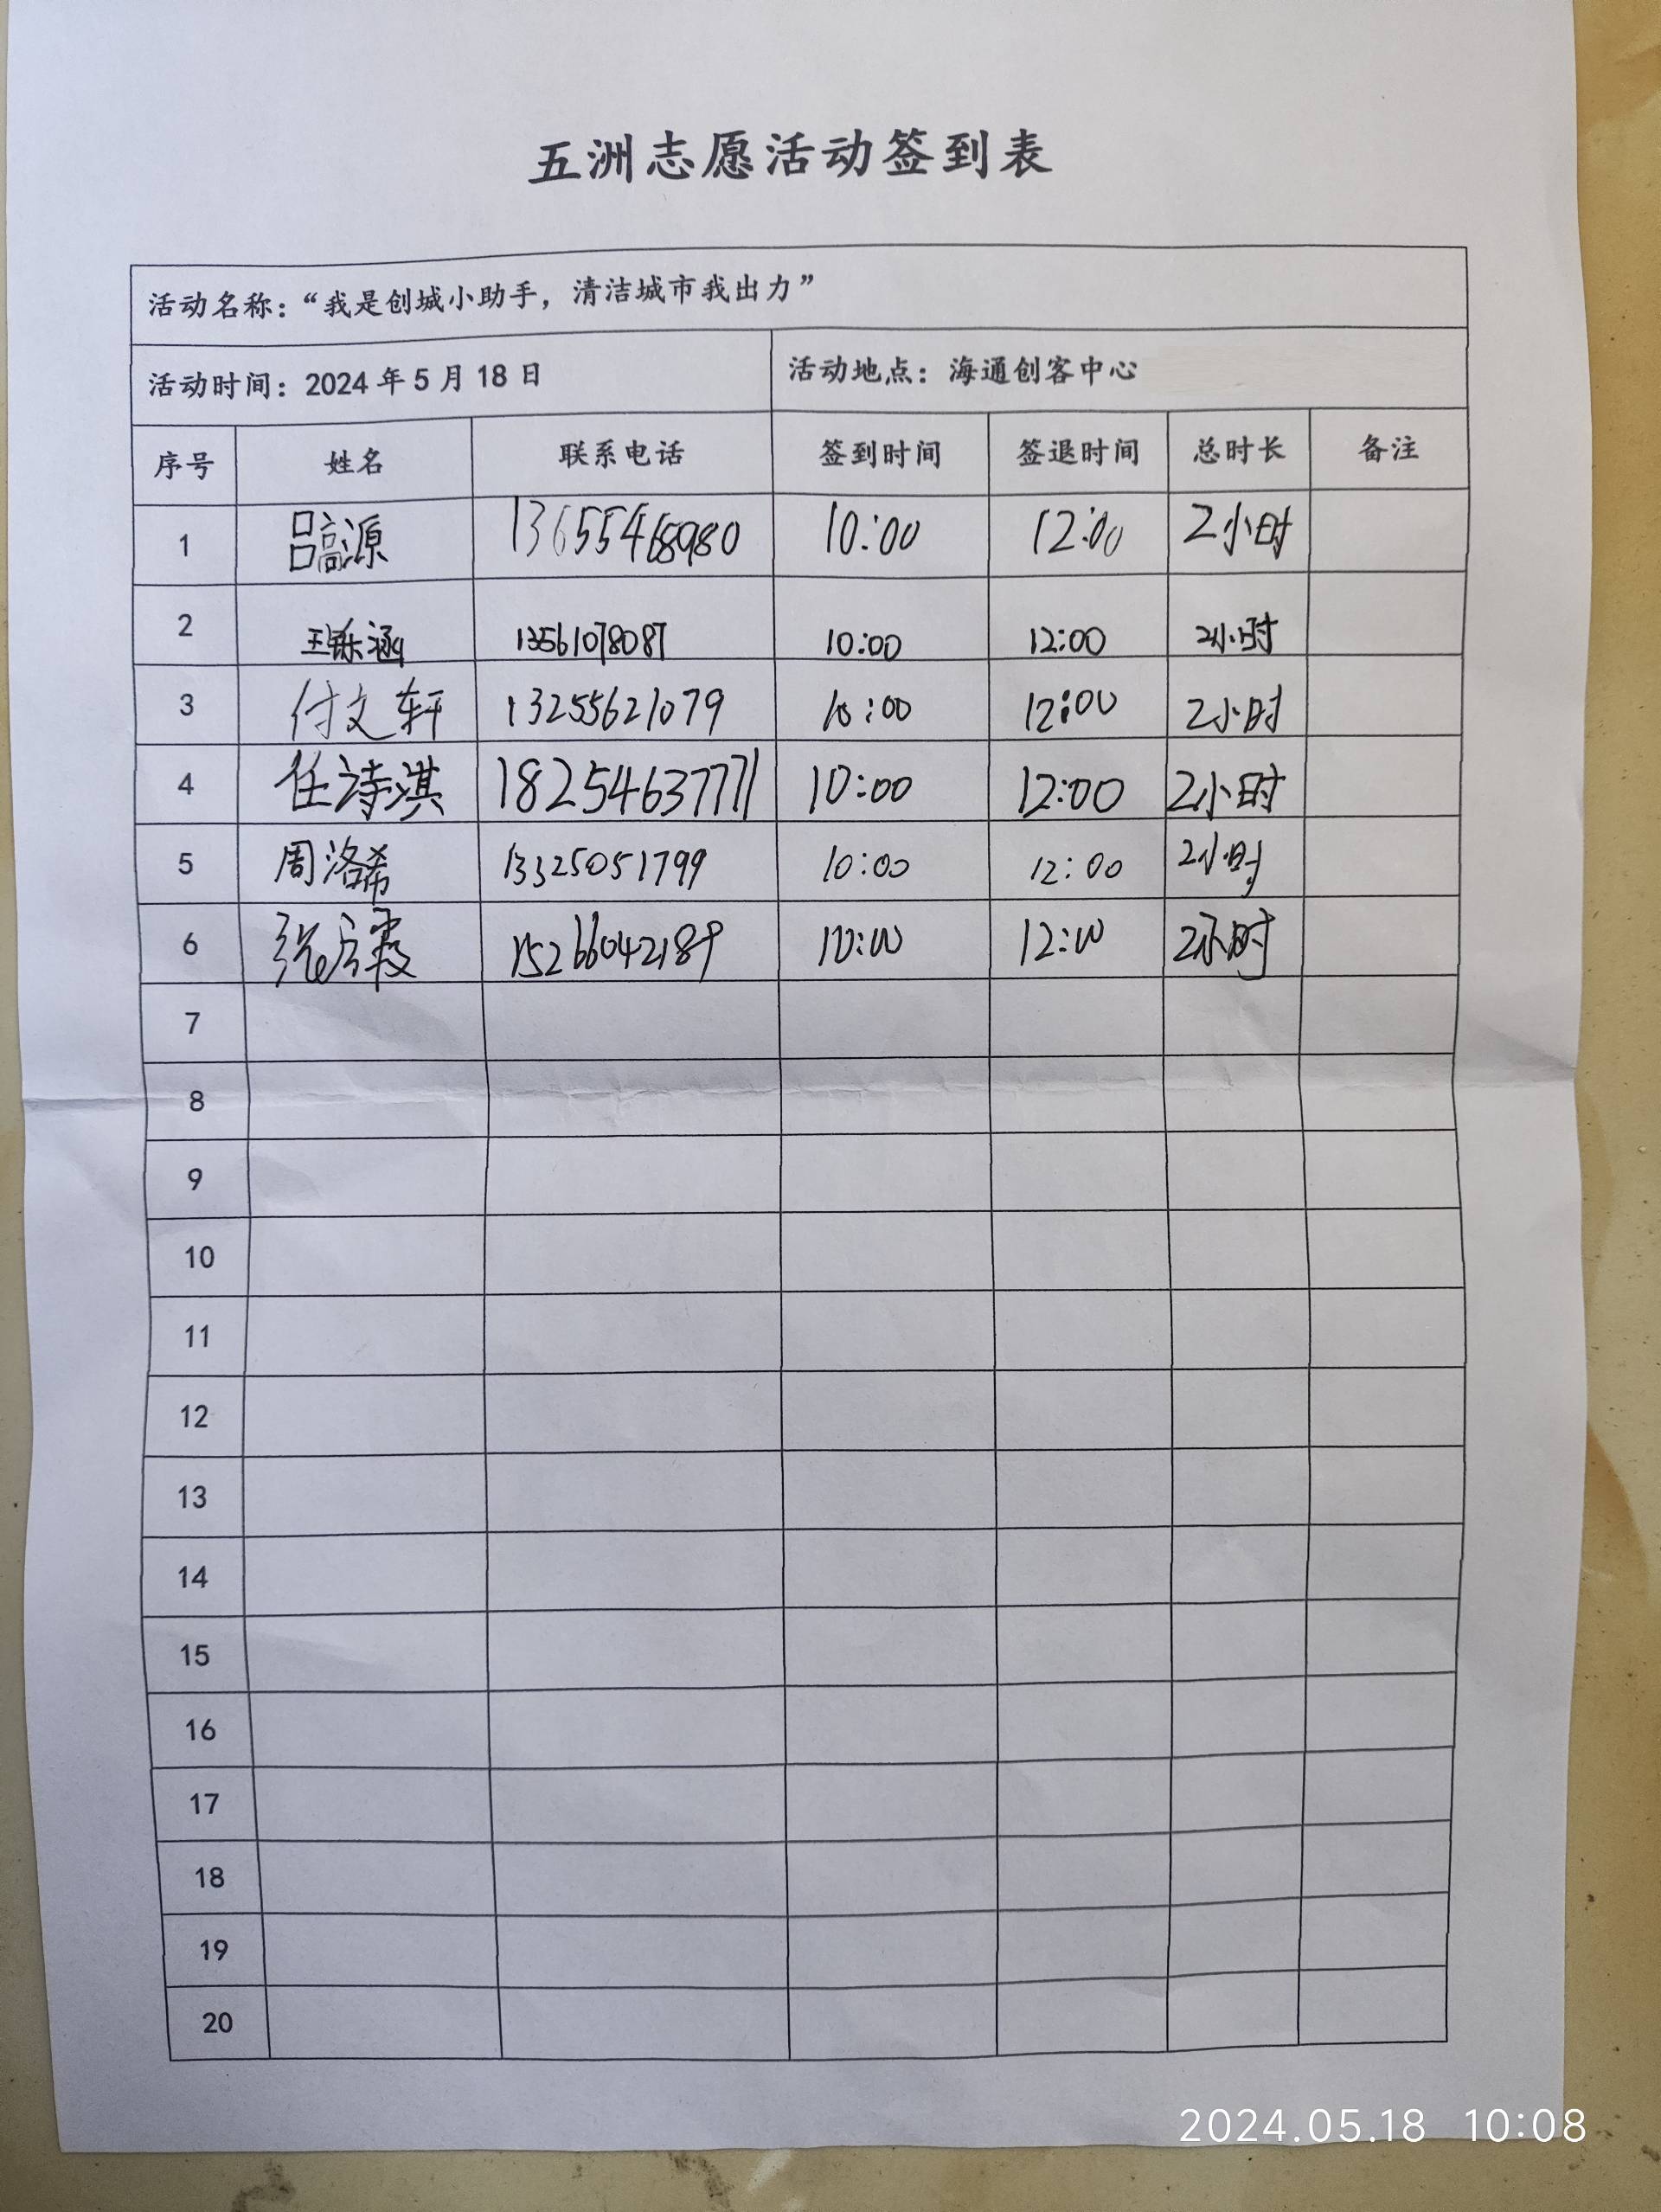 五洲志愿活动签到表
活动名称：“我是创城小助手，清洁城市我出力”
活动时间：2024年5月18日 活动地点：海通创客中心
序号 姓名 联系电话 签到时间 签退时间 总时长 备注
1 吕高源 13655468980 10:00 12:00 2小时
2 王铄涵 13561078087 10:00 12:00 2小时
3 付文轩 13255621079 10:00 12:00 2小时
4 任诗淇 18254637771 10:00 12:00 2小时
5 周洺希 13325051799 10:00 12:00 2小时
6 15266042189 10:00 12:00 2小时
7
8
9
10
11
12
13
14
15
16
17
18
19
20
2024.05.18 10:08